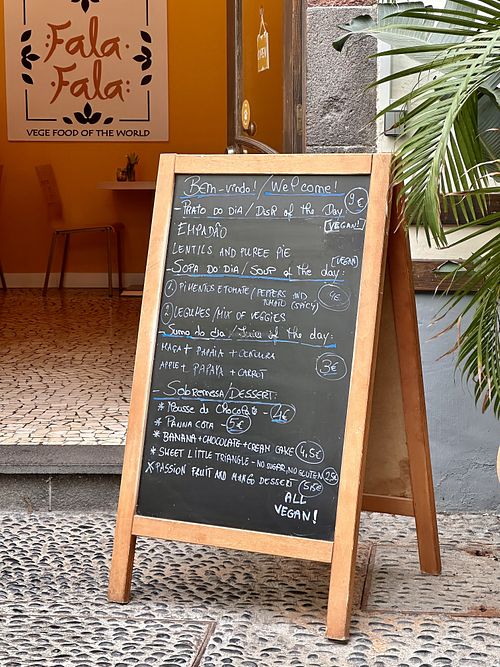 Fala
Fala
VEGE FOOD OF THE WORLD
OPEN
Bem-vindo! / Welcome!
- PRATO DO DIA / DISH of the Day: 9€
EMPADÃO [VEGAN!]
LENTILS AND PUREE PIE [VEGAN]
- SOPA DO DIA / SOUP of the day:
1) PIMENTOS E TOMATE / PEPPERS AND TOMATO (SPICY) 4€
2) LEGUMES / MIX OF VEGGIES
- Sumo do dia / Juice of the day:
MAÇA + PAPAIA + CENOURA 3€
APPLE + PAPAYA + CARROT
- Sobremesa / DESSERT:
* Mousse de Chocolate - 4€
* PANNA COTA - 5€
* BANANA + CHOCOLATE + CREAM CAKE 4,5€
* SWEET LITTLE TRIANGLE - NO SUGAR, NO GLUTEN 2,5€
X PASSION FRUIT AND MANGO DESSERT
ALL
VEGAN!